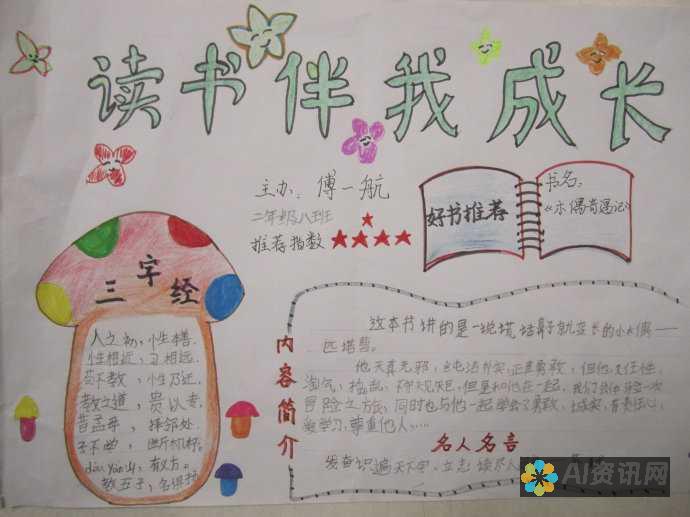 读书伴我成长
主办：傅一航
二年级八班
推荐指数
好书推荐
书名：
《木偶奇遇记》
三字经
人之初，性本善.
性相近，习相远.
苟不教，性乃迁.
教之道，贵以专.
昔孟母，择邻处.
子不学，断机杼.
dòu yān shān，有义方。
教五子，名俱扬
内容简介
这本书讲的是一说谎，鼻子就变长的小木偶——
匹诺曹。
他天真无邪，
勇敢，但他又任性，
淘气、捣乱、不
但是和他在一起，我们
一次
冒险之旅，同时也与他一起学会了勇敢、诚实、有责任心，
爱学习，尊重他人……
名人名言
发奋识遍天下字，立志读尽人
AI资讯网